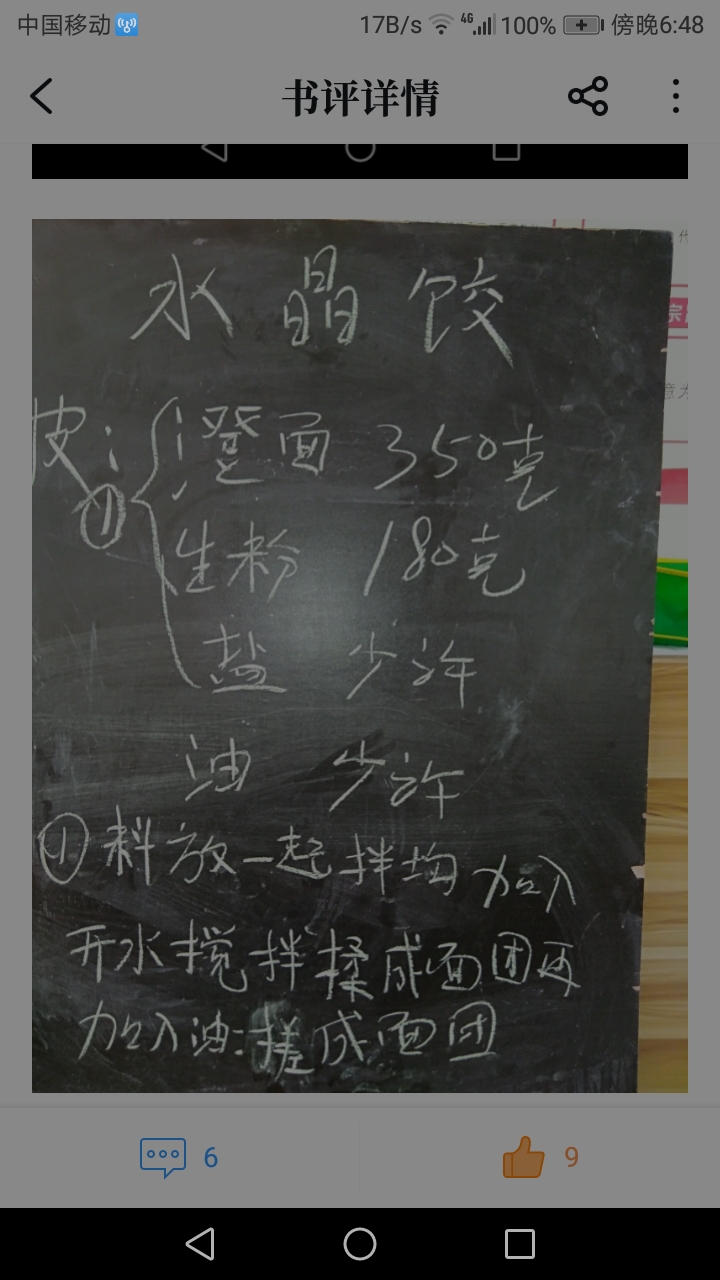 中国移动 17B/s 4G 100% 傍晚6:48
书评详情
水晶饺
皮: ① 澄面 350克
生粉 180克
盐 少许
油 少许
①料放一起拌均加入
开水搅拌揉成面团再
加入油:搓成面团
6 9